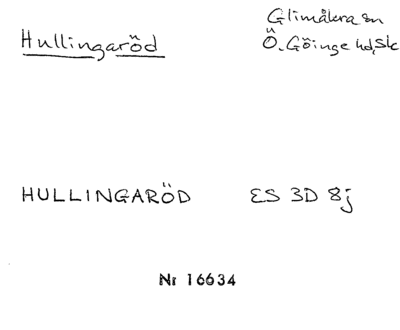 Hullingaröd
Glimåkra sn
Ö. Göinge hd, Sk
HULLINGARÖD ES 3D 8j
Nr 16634